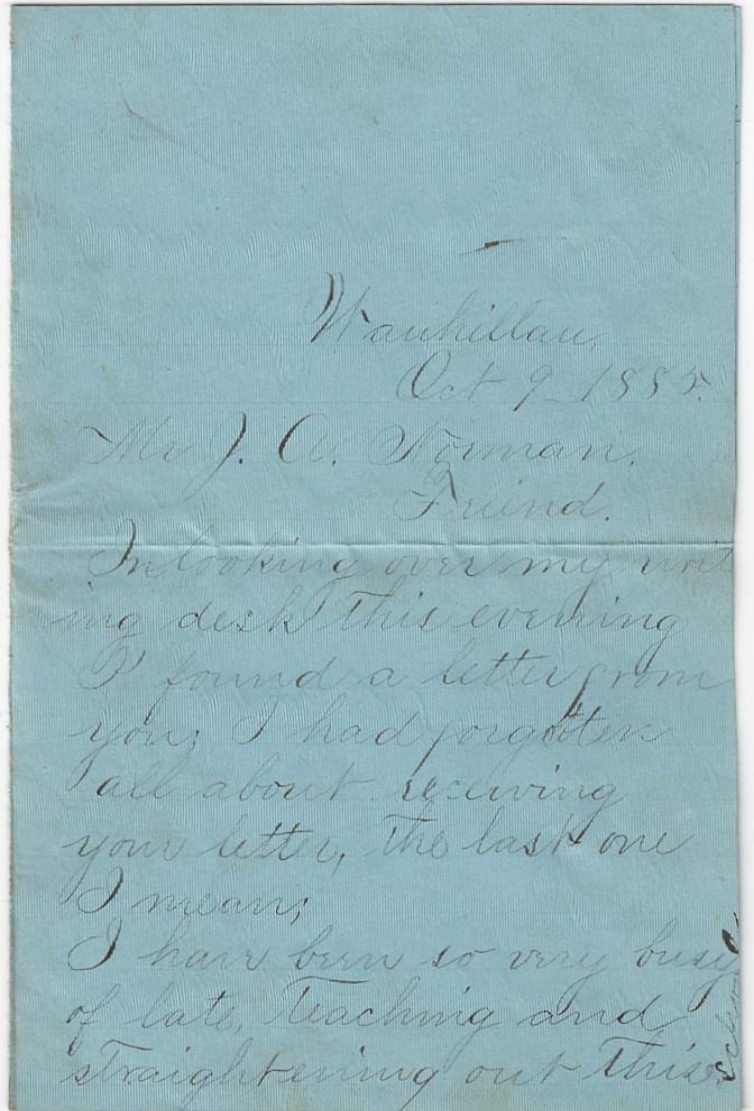 Wauhillau,
Oct 9 1885.
Mr J. W. Norman.
Friend.
In looking over my writ
ing desk this evening
I found a letter from
you; I had forgotten
all about receiving
your letter, the last one
I mean;
I have been so very busy
of late, teaching and
straightening out this
school